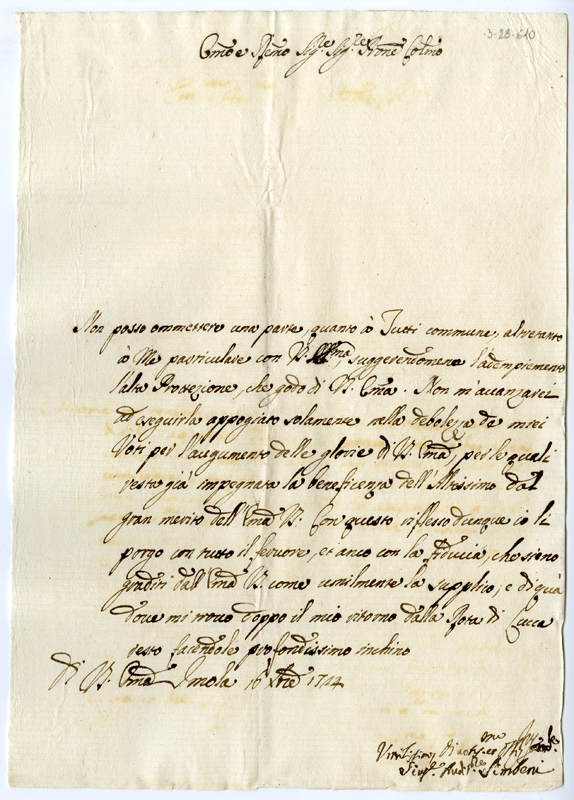 ·3·28·610
Emo e Rmo Sigre Sigre Prone Colmo
Non posso ommettere una parte, quanto à Tutti commune, altretanto
à Me particulare con V. Ema, suggerendomene l'adempimento
l'alta Protezione, che godo di V. Ema. Non m'avanzarei
ad eseguirla appogiato solamente nella debolezza de miei
Voti per l'augumento delle glorie di V. Ema, per le quali
resta già impegnata la beneficenza dell'Altissimo dal
gran merito dell'Ema V. Con questo riflesso dunque io li
porgo con tutto il fervore, et anco con la fiducia, che sieno
graditi dall'Ema V. come umilmente la supplico, e di quà
dove mi trovo doppo il mio ritorno dalla Rota di Lucca
resto facendole profondissimo inchino
Di V. Ema Imola 16 Xbre 1744
Simbeni